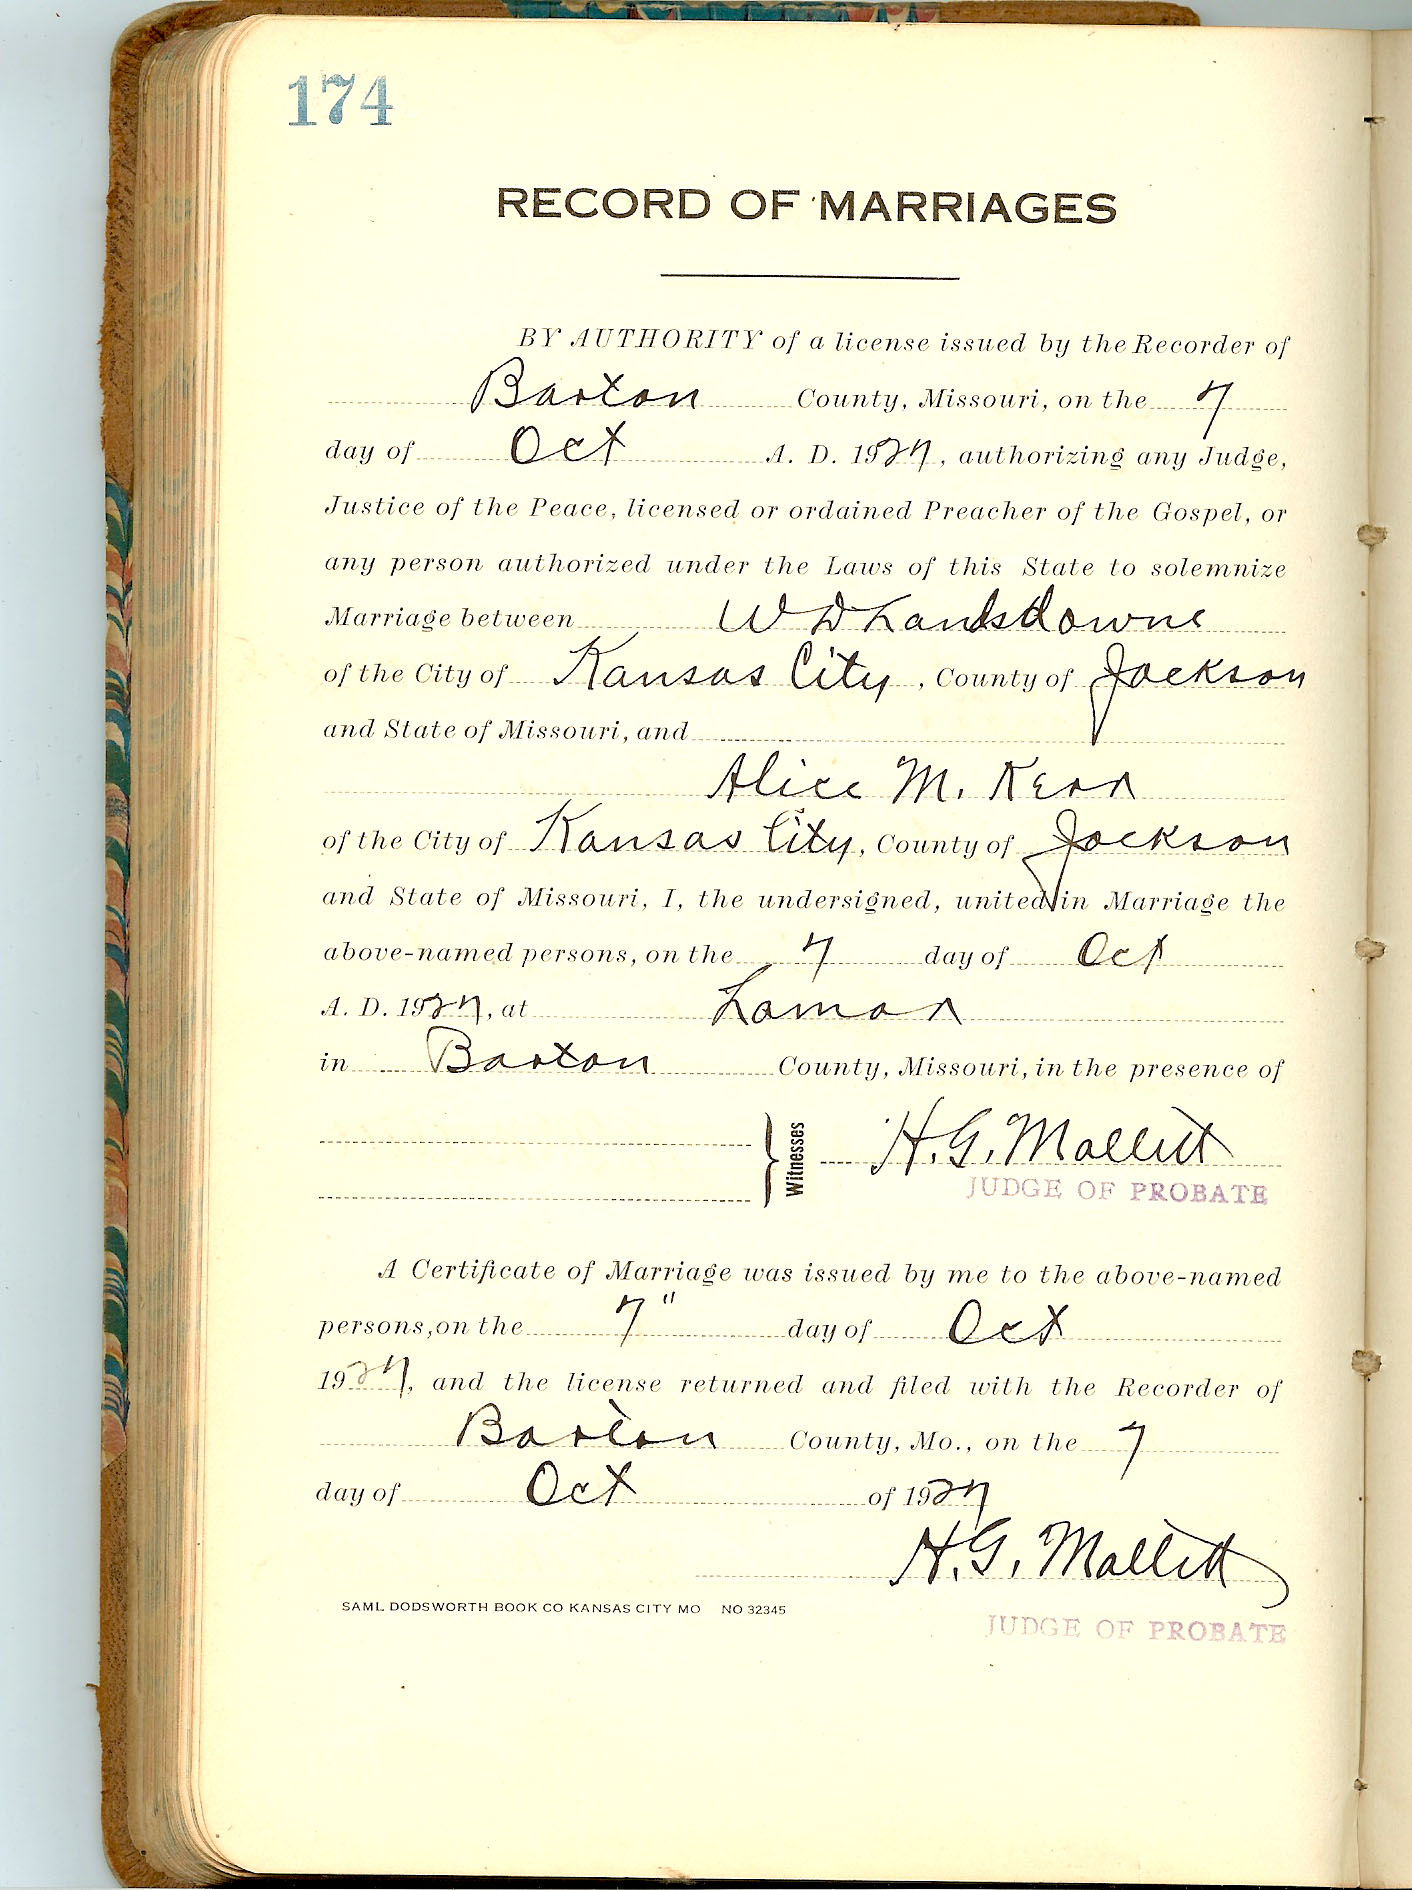 174
RECORD OF MARRIAGES
BY AUTHORITY of a license issued by the Recorder of
Barton County, Missouri, on the 7
day of Oct A. D. 1927, authorizing any Judge,
Justice of the Peace, licensed or ordained Preacher of the Gospel, or
any person authorized under the Laws of this State to solemnize
Marriage between W D Landsdowne
of the City of Kansas City, County of Jackson
and State of Missouri, and
Alice M. Kerr
of the City of Kansas City, County of Jackson
and State of Missouri, I, the undersigned, united in Marriage the
above-named persons, on the 7 day of Oct
A. D. 1927, at Lamar
in Barton County, Missouri, in the presence of
Witnesses H. G. Mallett
JUDGE OF PROBATE
A Certificate of Marriage was issued by me to the above-named
persons, on the 7" day of Oct
1927, and the license returned and filed with the Recorder of
Barton County, Mo., on the 7
day of Oct of 1927
H. G. Mallett
SAML DODSWORTH BOOK CO KANSAS CITY MO NO 32345
JUDGE OF PROBATE